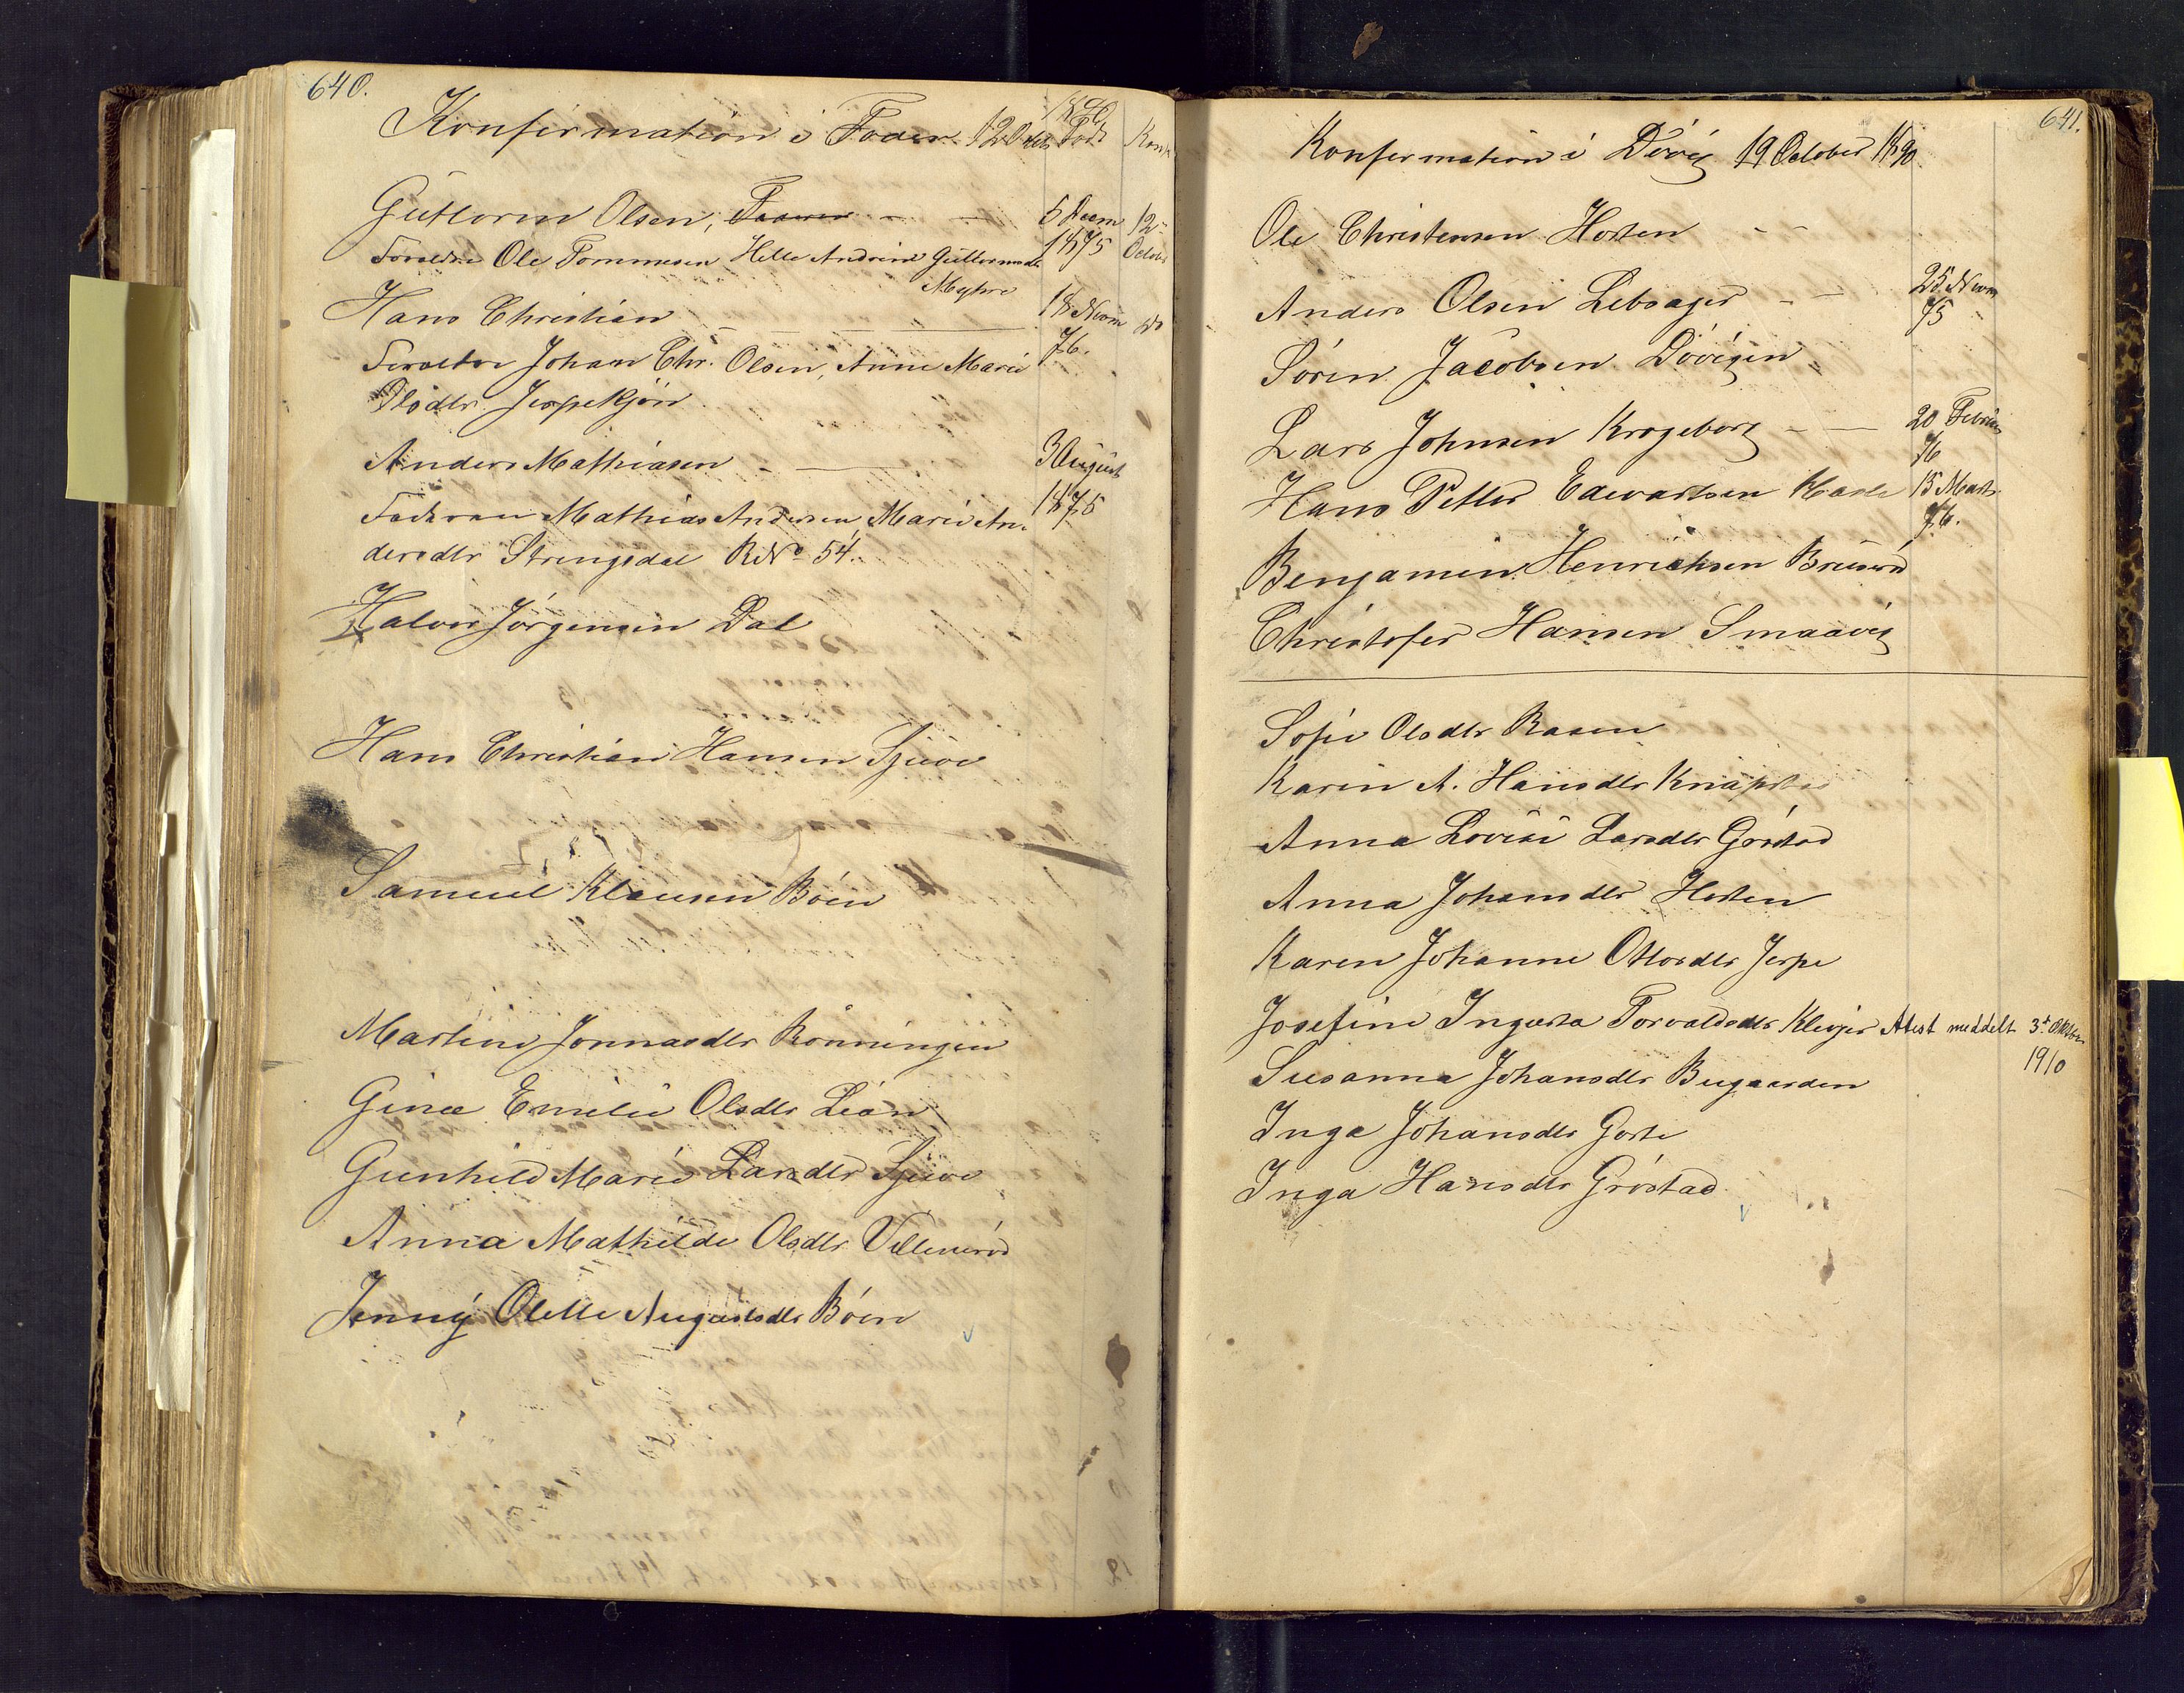 640.
Konfirmation i Foden 12 Octb 1890 Födt Konf
Guttorm Olsen, Faaren 5 Decm 12-
Foreldre Ole Tommesen Helle Andrine Guttormsdtr 1875 Octob
Myhre
Hans Christian 18 Novm do
Foreldre Johan Chr. Olsen, Anne Marie 76.
Olsdtr Jerpekjön
Anders Mathiasen 3 August
Mathias Andersen, Marie An- 1875
dersdtr Strengsdal RNo 54.
Halvor Jörgensen Dal
Hans Christian Hansen Sjuve
Samuel Klausen Böen
Martine Jonnasdtr Rönningen
Gina Emilie Olsdtr Lian
Gunhild Marie Larsdtr Sjuve
Anna Mathilde Olsdtr Villeneröd
Jenny Olette Augustsdtr Böen
641.
Konfirmation i Dövig 19 October 1890
Ole Christensen Horten
Anders Olsen Lebsager 25 Novm
75
Sören Jacobsen Dövigen
Lars Johnsen Krogeborg 20 Februar
76
Hans Petter Edvartsen Hasle 15 Marts
76.
Benjamin Henriksen Bruserö
Christofer Hansen Smaavig
Sofie Olsdtr Rasen
Karin A. Hansdtr Knapstad
Anna Lovise Larsdtr Gröstad
Anna Johansdtr Horten
Karen Johanne Ottosdtr Jerpe
Josefine Ingarta Torvaldsdtr Klevjer Atest meddelt 3d Oktbr
1910
Susanna Johansdtr Bugaarden
Inga Johansdtr Goste
Inga Hansdtr Gröstad